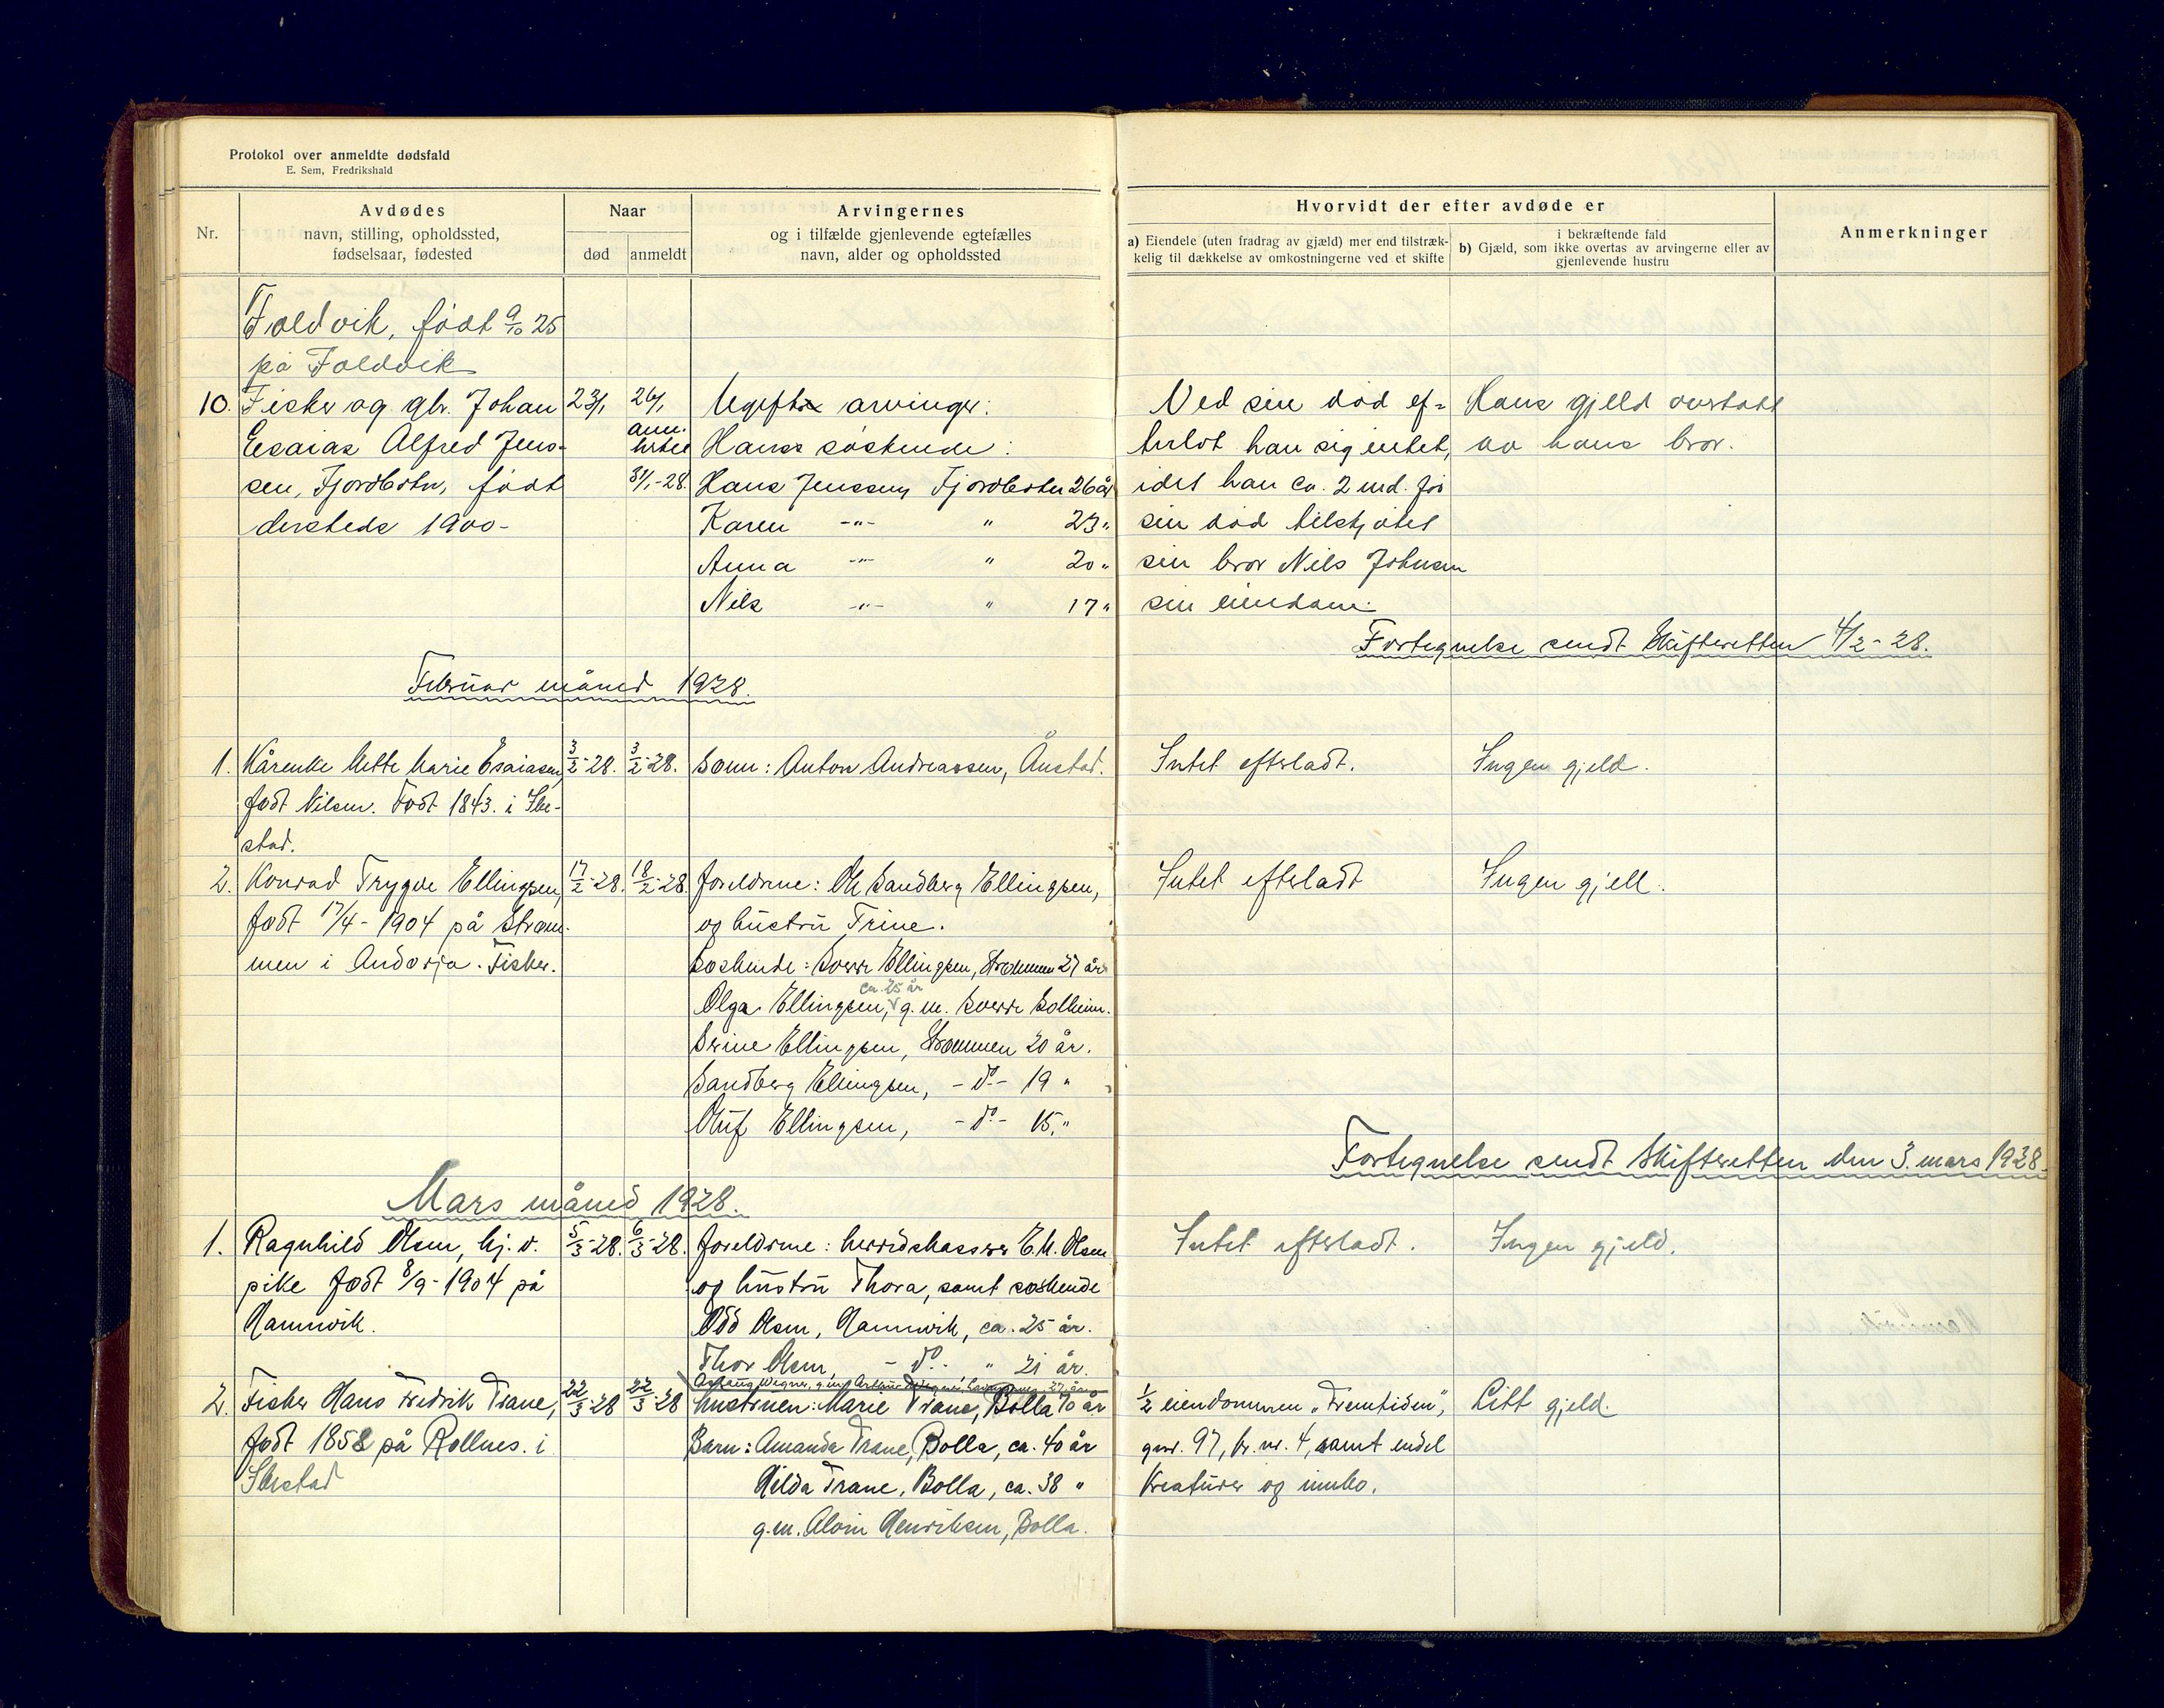 Protokol over anmeldte dødsfald
E. Sem, Fredrikshald
Nr.
Avdødes
navn, stilling, opholdssted,
fødselsaar, fødested
Naar
død
anmeldt
Arvingernes
og i tilfælde gjenlevende egtefælles
navn, alder og opholdssted
Hvorvidt der efter avdøde er
a) Eiendele (uten fradrag av gjæld) mer end tilstræk-
kelig til dækkelse av omkostningerne ved et skifte
i bekræftende fald
b) Gjæld, som ikke overtas av arvingerne eller av
gjenlevende hustru
Anmerkninger
Foldvik, født 9/10 25
på Foldvik
10. Fisker og gbr. Johan 23/1 26/1 Ugift arvinger: Ved sin død ef= Hans gjeld overtatt
Esaias Alfred Jens- Hans søskende: terlot han sig intet, av hans bror.
sen, Fjordbotn, født 31/1-28. Hans Jenssen, Fjordbotn 26 år idet han ca. 2 md. før
dersteds 1900- Karen -"- " 23 " sin død tilskjøtet
Anna -"- " 20 " sin bror Nils Johnsen
Nils -"- " 17 " sin eiendom.
Fortegnelse sendt Skifteretten 4/2-28.
Februar måned 1928.
1. Kårenke Mette Marie Esaiasen, 3/2-28. 3/2-28. Sønn: Anton Andreassen, Ånstad. Intet efterladt. Ingen gjeld.
født Nilsen. Født 1843. i Ibe-
stad.
2. Konrad Trygve Ellingsen, 17/2-28. 18/2-28. foreldrene: Ole Sandberg Ellingsen, Intet efterladt Ingen gjeld.
født 17/4-1904 på Strøm- og hustru Trine.
men i Andørja. Fisker. Søskende: Sverre Ellingsen, Strømmen 27 år
ca. 25 år
Olga Ellingsen, g.m. Sverre Solheim.
Serine Ellingsen, Strømmen 20 år.
Sandberg Ellingsen, -do- 19 "
Oluf Ellingsen, -do- 15. "
Fortegnelse sendt Skifteretten den 3. mars 1928.
Mars måned 1928.
1. Ragnhild Olsen, hj.v. 5/3-28. 6/3-28. foreldrene: herredskasserer E.M. Olsen Intet efterladt. Ingen gjeld.
pike født 8/9-1904 på og hustru Thora, samt søskende
Hamnvik. Odd Olsen, Hamnvik, ca. 25 år.
Thor Olsen -do- " 21 år.
2. Fisker Hans Fredrik Trane, 22/3-28 22/3-28 hustruen: Marie Trane, Bolla 70 år 1/2 eiendommen "Fremtiden", Litt gjeld.
født 1858 på Rollnes. i Barn: Amanda Trane, Bolla, ca. 40 år gnr. 97, br. nr. 4, samt endel
Ibestad Hilda Trane, Bolla, ca. 38 " kreaturer og innbo.
g.m. Alvin Henriksen, Bolla.